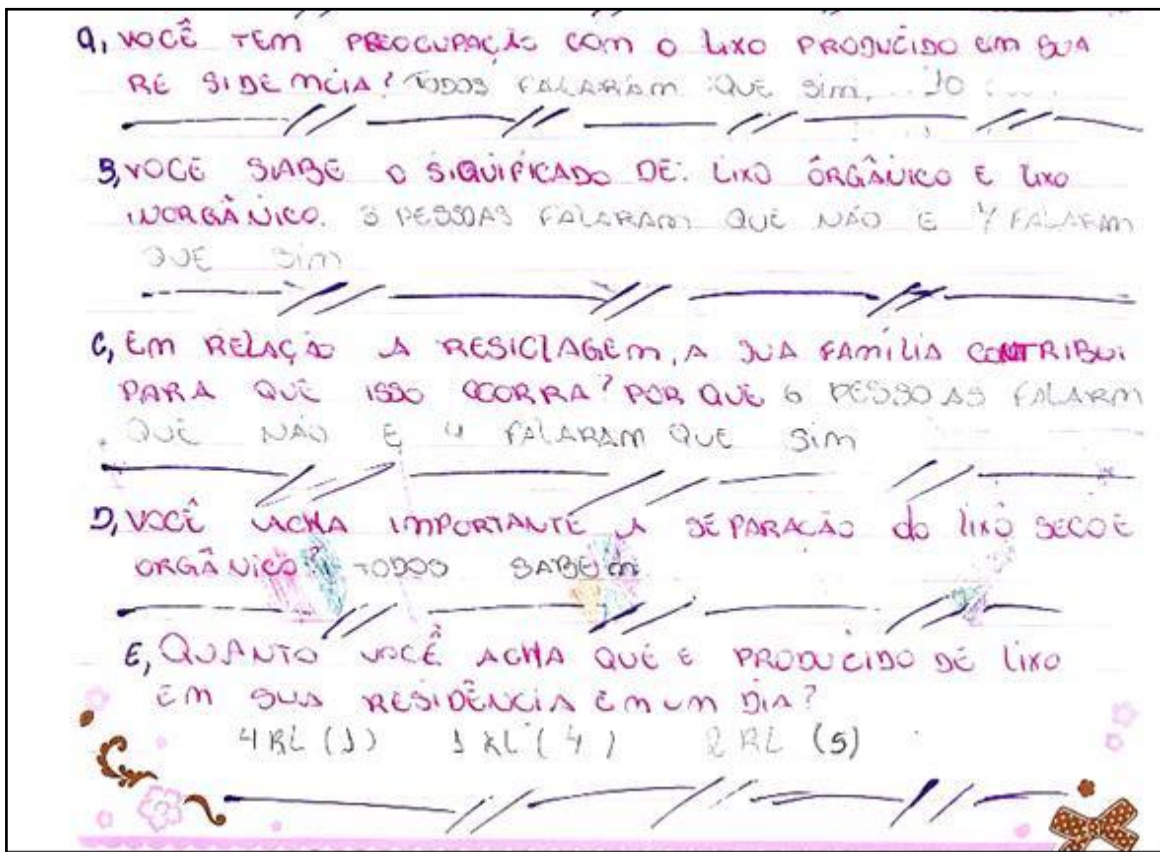 a, VOCÊ TEM PREOCUPAÇÃO COM O LIXO PRODUCIDO EM SUA
RE SIDEMCIA? TODOS FALARAM QUE SIM. 10
B, VOCE SABE O SIQUIFICADO DE: LIXO ÔRGÂNICO E LIXO
INORGÂNICO. 3 PESSOAS FALARAM QUE NÃO E 7 FALARAM
QUE SIM
C, EM RELAÇÃO A RESICLAGEM, A SUA FAMÍLIA CONTRIBUI
PARA QUE ISSO OCORRA? POR QUE 6 PESSOAS FALARM
QUE NÃO E 4 FALARAM QUE SIM
D, VOCÊ ACHA IMPORTANTE A SEPARAÇÃO do lixo SECO E
ORGÂNICO? TODOS SABEM
E, QUANTO VOCÊ ACHA QUE E PRODUCIDO DE LIXO
EM SUA RESIDÊNCIA EM UM DIA?
4 KL (1) 1 KL (4) 2 KL (5)